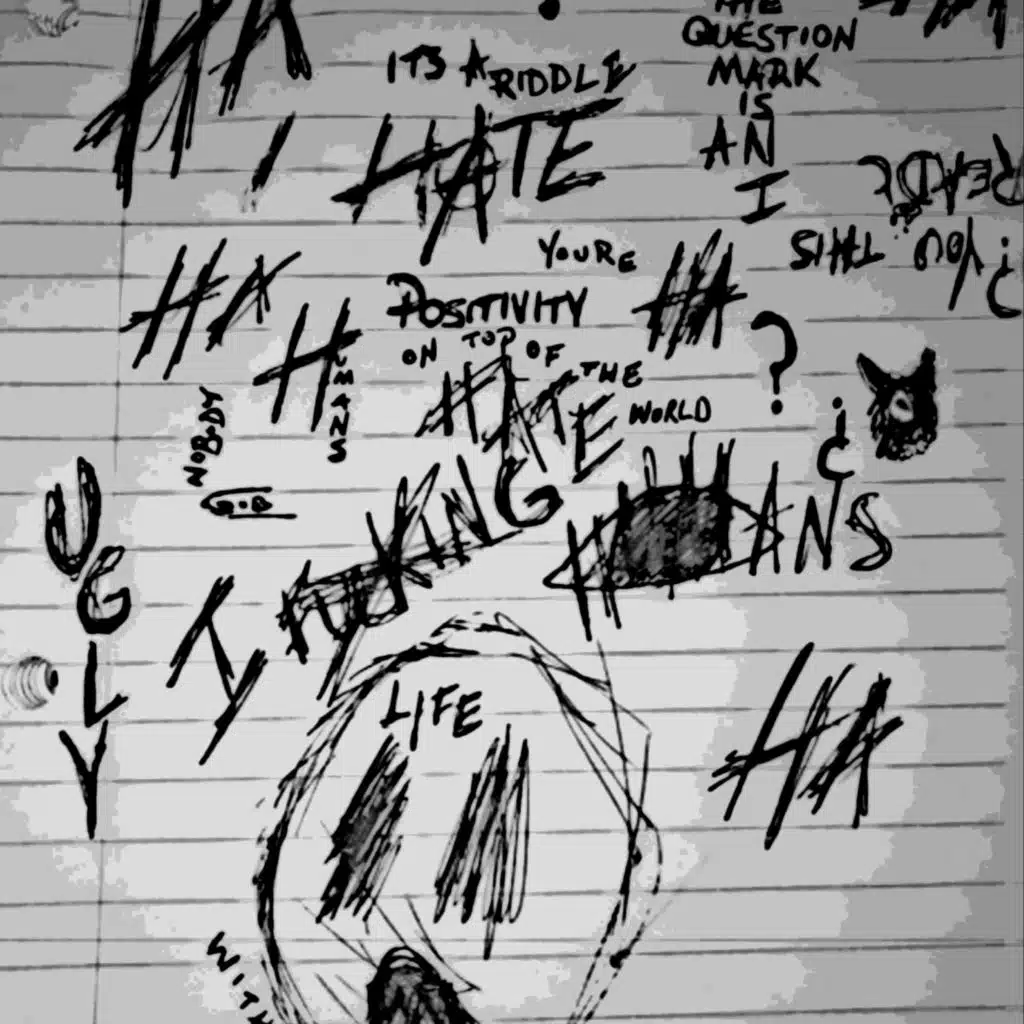 HA
THE
QUESTION
MARK
IS
AN
I
HA
ITS A RIDDLE
HATE
READ
THIS
YOU
?
YOURE
HA
HUMANS
POSITIVITY
ON TOP OF
HATE
THE
WORLD
HA
?
?
NOBODY
UGLY
I FUCKING
HUMANS
LIFE
HA
WITH